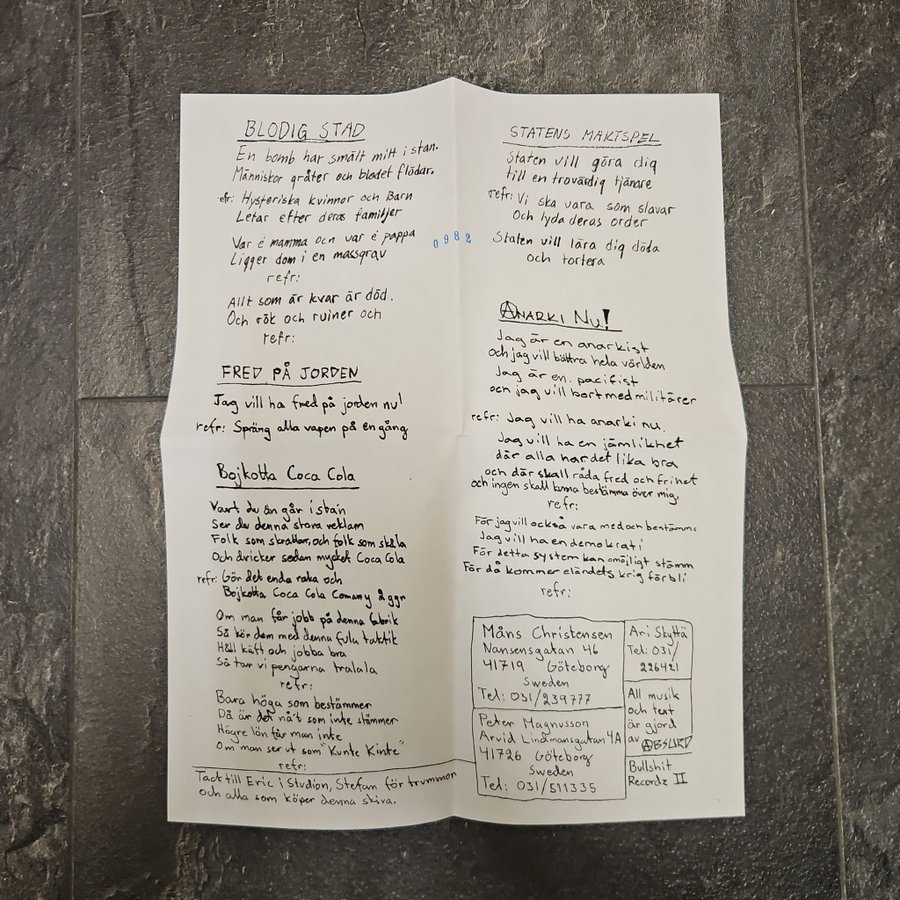 BLODIG STAD
En bomb har smält mitt i stan.
Människor gråter och blodet flödar.
refr: Hysteriska kvinnor och Barn
Letar efter deras familjer
Var é mamma och var é pappa
Ligger dom i en massgrav
refr:
Allt som är kvar är död.
Och rök och ruiner och
refr:
FRED PÅ JORDEN
Jag vill ha fred på jorden nu!
refr: Spräng alla vapen på en gång
Bojkotta Coca Cola
Vart du än går i stan
Ser du denna stora reklam
Folk som skrattar, och folk som skåla
Och dricker sedan mycket Coca Cola
refr: Gör det enda raka och
Bojkotta Coca Cola Comany 2 ggr
Om man får jobb på denna fabrik
Så kör dem med denna fula taktik
Håll käft och jobba bra
Så tar vi pengarna tralala
refr:
Bara höga som bestämmer
Då är det nå't som inte stämmer
Högre lön får man inte
Om man ser ut som "Kunte Kinte"
refr:
Tack till Eric i Studion, Stefan för trummor
och alla som köper denna skiva.
0982
STATENS MAKTSPEL
Staten vill göra dig
till en trovärdig tjänare
refr: Vi ska vara som slavar
Och lyda deras order
Staten vill lära dig döda
och tortera
ANARKI NU!
Jag är en anarkist
och jag vill bättra hela världen
Jag är en pacifist
och jag vill bort med militärer
refr: Jag vill ha anarki nu.
Jag vill ha en jämlikhet
där alla har det lika bra
och där skall råda fred och frihet
och ingen skall bestämma över mig.
refr:
För jag vill också vara med och bestämma
Jag vill ha en demokrati
För detta system kan omöjligt stämm
För då kommer eländets krig förbli
refr:
Måns Christensen
Nansensgatan 46
41719 Göteborg
Sweden
Tel: 031/239777
Peter Magnusson
Arvid Lindmansgatan 4A
41726 Göteborg
Sweden
Tel: 031/511335
Ari Skyttä
Tel: 031/
226421
All musik
och text
är gjord
av ABSURD
Bullshit
Recordz II